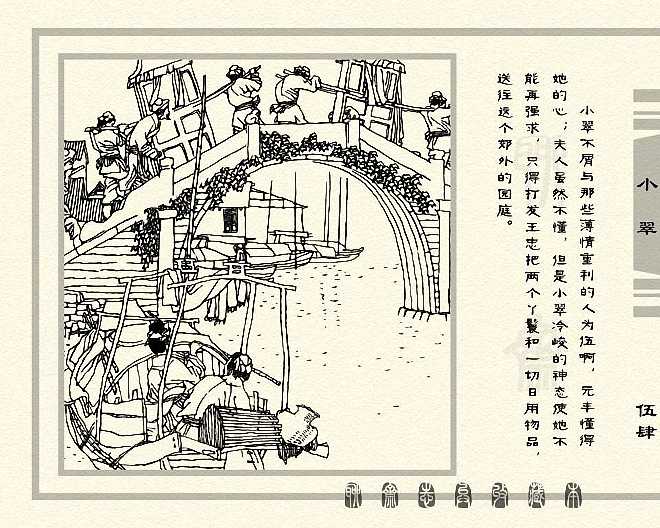 小翠
伍肆
小翠不屑与那些薄情重利的人为伍啊，元丰懂得
她的心；夫人虽然不懂，但是小翠冷峻的神态使她不
能再强求，只得打发王忠把两个丫鬟和一切日用物品，
送往这个郊外的园庭。
聊斋志异收藏本